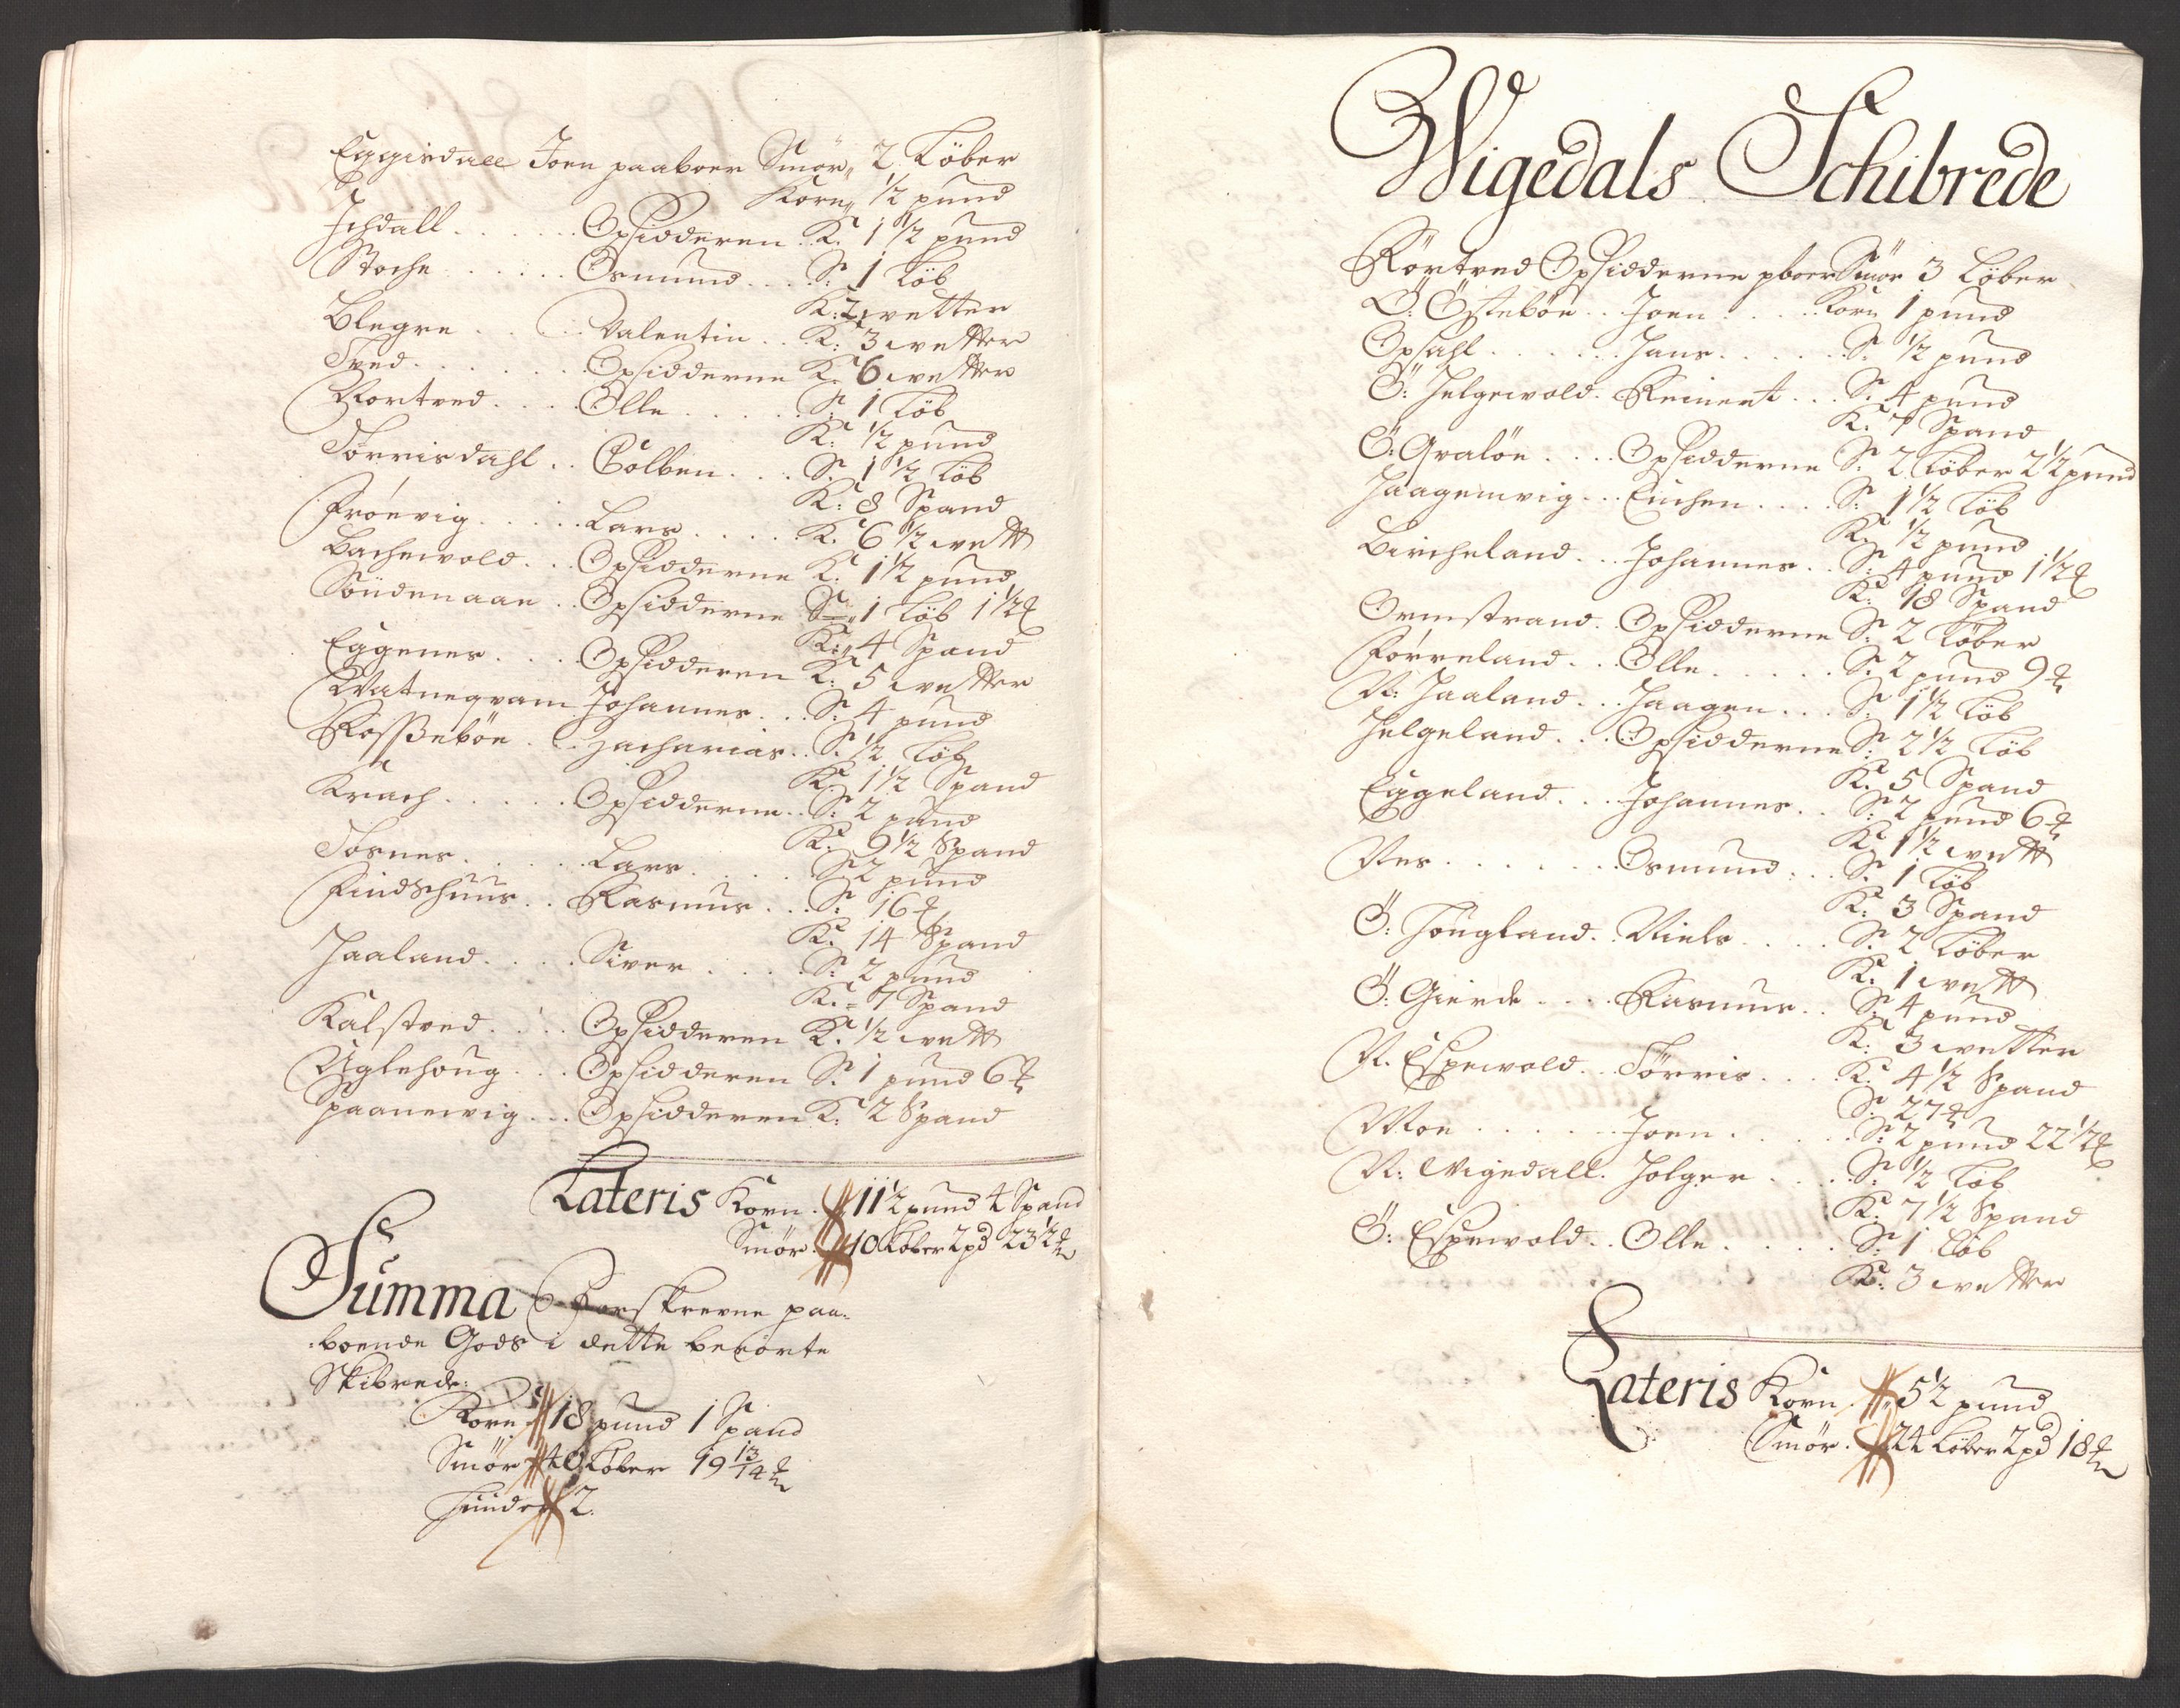 Eggisdall Joen paaboer Smör„ 2 Löber
Korn„ 1/2 pund
Ischdall . . . . . . Opsidderen K. 1 1/2 pund
Stoche . . . . . . Osmund . . . S: 1 Löb
K: 2 wetter
Blegre . . . . . Valentin . . K: 3 wetter
Tved . . . . . . . Opsidderne K. 6 wetter
Nortved . . . . Olle . . . . . S: 1 Löb
K: 1/2 pund
Torrisdahl . . Colben . . . S. 1 1/2 Löb
K: 8 Spand
Fröevig . . . . . Lars . . . . . K. 6 1/2 wett
Bachevold . . . Opsidderne K. 1 1/2 pund
Söndenaae . . Opsidderne S„ 1 Löb 1 1/2 ℔
K:„ 4 Spand
Eggenes . . . . Opsidderen K: 5 wetter
Vatneqvam Johannes . . . S: 4 pund
Rosseböe . . . Zacharias . . S. 1/2 Löb
K. 1 1/2 Spand
Krach . . . . . . Opsidderne . . S: 2 pund
K. 9 1/2 Spand
Tosnes . . . . . . Lars . . . . . S: 2 pund
Findschuus . . Rasmus . . . S: 16 ℔
K. 14 Spand
Haaland . . . . Siver . . . . . S: 2 pund
K. = 7 Spand
Kalstved . . . . Opsidderen K. 1/2 wett
Uglehoug . . . Opsidderen S. 1 pund 6 ℔
Spaanevig . . . Opsidderen K: 2 Spand
Lateris Korn . 11 1/2 pund 4 Spand
Smör . 40 Löber 2 pd 23 1/2 ℔
Summa Forskrevne paa=
=boende Gods i dette berörte
Skibrede:
Korn 18 pund 1 Spand
Smör 40 Löber 19 13/14 ℔
Huuder 2.
Wigedals Schibrede
Rörtved Opsidderne pboer Smör 3 Löber
Ö: Östeböe . . Joen . . . . Korn 1 pund
Opsahl . . . . . . Jans . . . . . S. 1/2 pund
Ö: Helgevold . Reinert . . . S. 4 pund
K. 7 Spand
Ö: Qvalöe . . . . Opsidderne S. 2 Löber 2 1/2 pund
Haagenvig . . . Enchen . . . . S: 1 1/2 Löb
K. 1/2 pund
Bircheland . . . Johannes . . S. 4 pund 1 1/2 ℔
K. 18 Spand
Ormstrand . Opsidderne S. 2 Löber
Förreland . . . Olle . . . . . . S: 2 pund 9 ℔
N: Haaland . . . Haagen . . . S: 1 1/2 Löb
Helgeland . . . . Opsidderne S: 2 1/2 Löb
K. 5 Spand
Eggeland . . . Johannes . . S: 2 pund 6 ℔
K. 1 1/2 wett
Nes . . . . . . . Osmund . . . S. 1 Löb
K: 3 Spand
Ö: Höugland . . Niels . . . . S. 2 Löber
K. 1 wett
Ö: Gierde . . . . Rasmus . . S: 4 pund
K: 3 wetter
N. Espevold . . Törris . . . . K: 4 1/2 Spand
S: 27 ℔
Moe . . . . . . . Joen . . . . . . S: 2 pund 22 1/2 ℔
N: Wigedall . Holger . . . . S: 1/2 Löb
K. 7 1/2 Spand
Ö: Espevold . . Olle . . . . . S: 1 Löb
K: 3 wetter
Lateris Korn . 5 1/2 pund
Smör . 24 Löber 2 pd 18 ℔